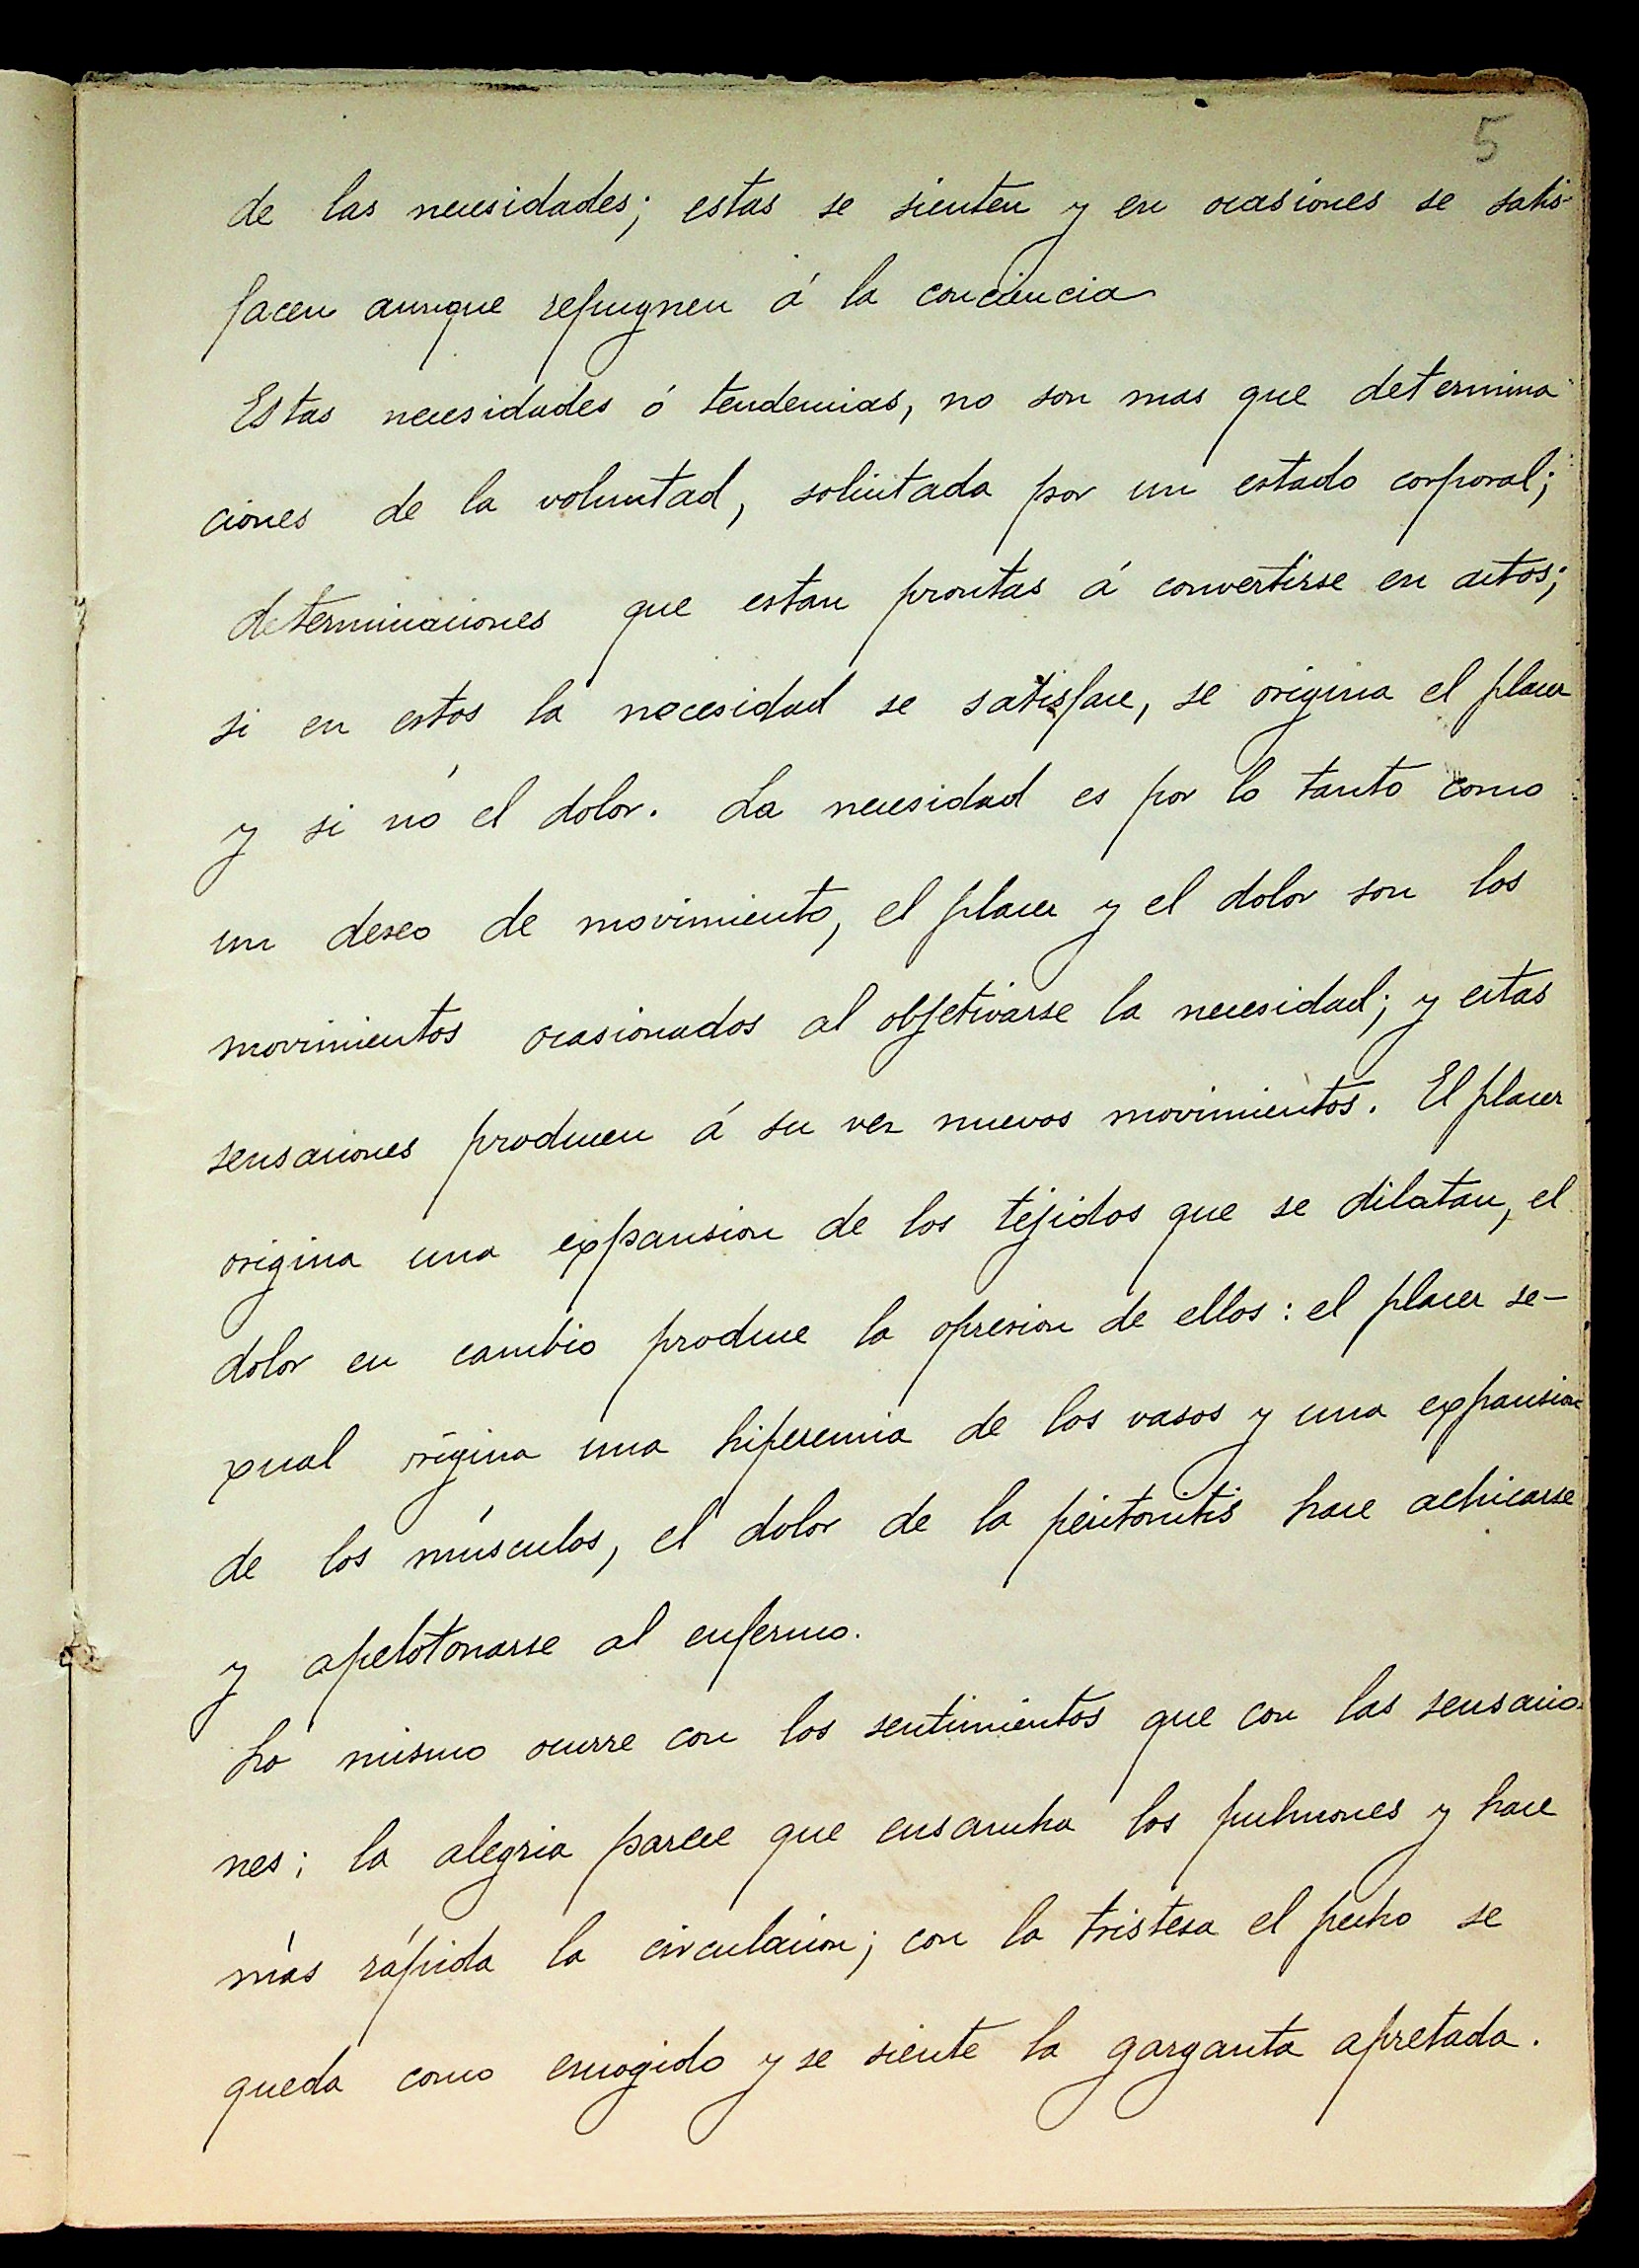 5
de las necesidades; estas se sienten y en ocasiones se satis-
facen aunque repugnen á la conciencia
Estas necesidades ó tendencias, no son mas que determina-
ciones de la voluntad, solicitada por un estado corporal;
determinaciones que estan prontas á convertirse en actos;
si en estos la necesidad se satisface, se origina el placer
y si nó el dolor. La necesidad es por lo tanto como
un deseo de movimiento, el placer y el dolor son los
movimientos ocasionados al objetivarse la necesidad; y estas
sensaciones producen á su vez nuevos movimientos. El placer
origina una expansion de los tejidos que se dilatan, el
dolor en cambio produce la opresion de ellos: el placer se-
xual origina una hiperemia de los vasos y una expansion
de los músculos, el dolor de la peritonitis hace achicarse
y apelotonarse al enfermo.
Lo mismo ocurre con los sentimientos que con las sensacio-
nes; la alegria parece que ensancha los pulmones y hace
más rápida la circulacion; con la tristesa el pecho se
queda como encogido y se siente la garganta apretada.